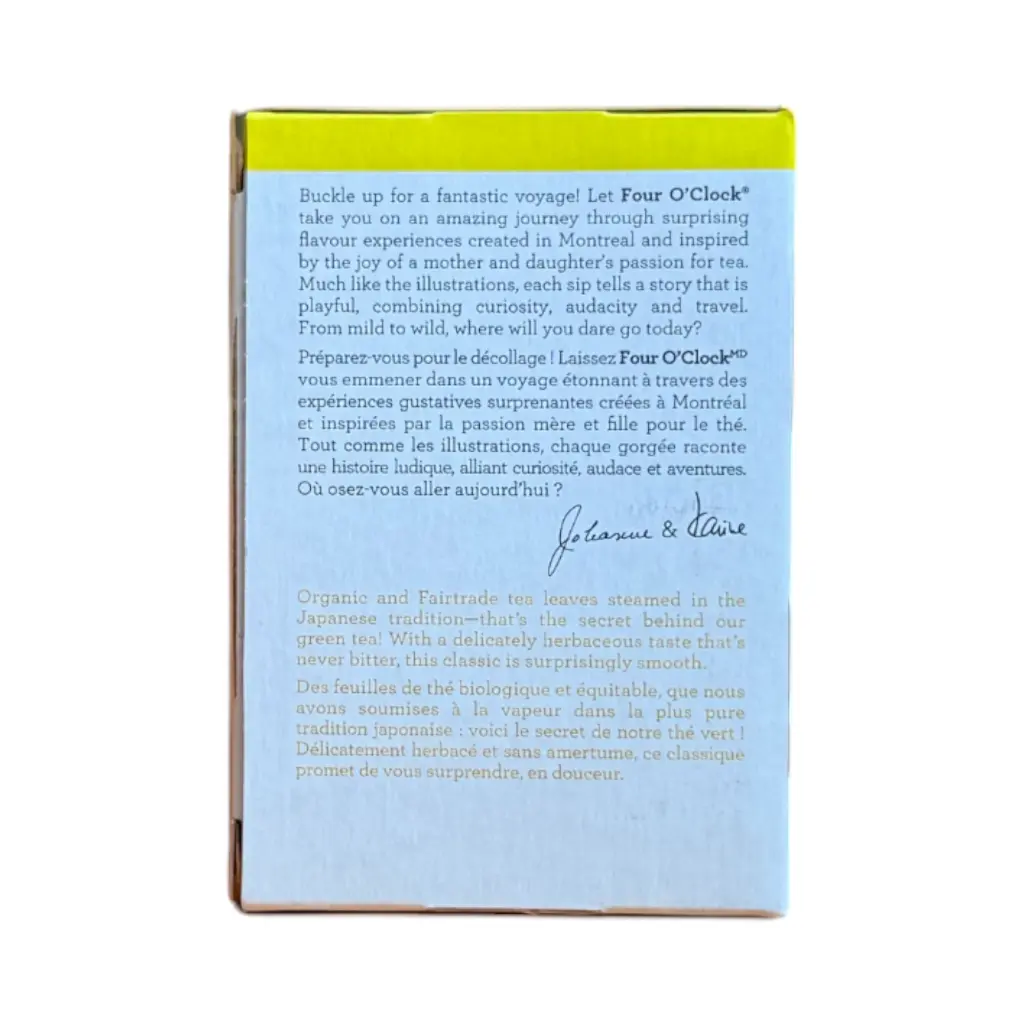 Buckle up for a fantastic voyage! Let Four O'Clock®
take you on an amazing journey through surprising
flavour experiences created in Montreal and inspired
by the joy of a mother and daughter's passion for tea.
Much like the illustrations, each sip tells a story that is
playful, combining curiosity, audacity and travel.
From mild to wild, where will you dare go today?
Préparez-vous pour le décollage ! Laissez Four O'Clockᴹᴰ
vous emmener dans un voyage étonnant à travers des
expériences gustatives surprenantes créées à Montréal
et inspirées par la passion mère et fille pour le thé.
Tout comme les illustrations, chaque gorgée raconte
une histoire ludique, alliant curiosité, audace et aventures.
Où osez-vous aller aujourd'hui ?
Johanne & Karine
Organic and Fairtrade tea leaves steamed in the
Japanese tradition—that's the secret behind our
green tea! With a delicately herbaceous taste that's
never bitter, this classic is surprisingly smooth.
Des feuilles de thé biologique et équitable, que nous
avons soumises à la vapeur dans la plus pure
tradition japonaise : voici le secret de notre thé vert !
Délicatement herbacé et sans amertume, ce classique
promet de vous surprendre, en douceur.